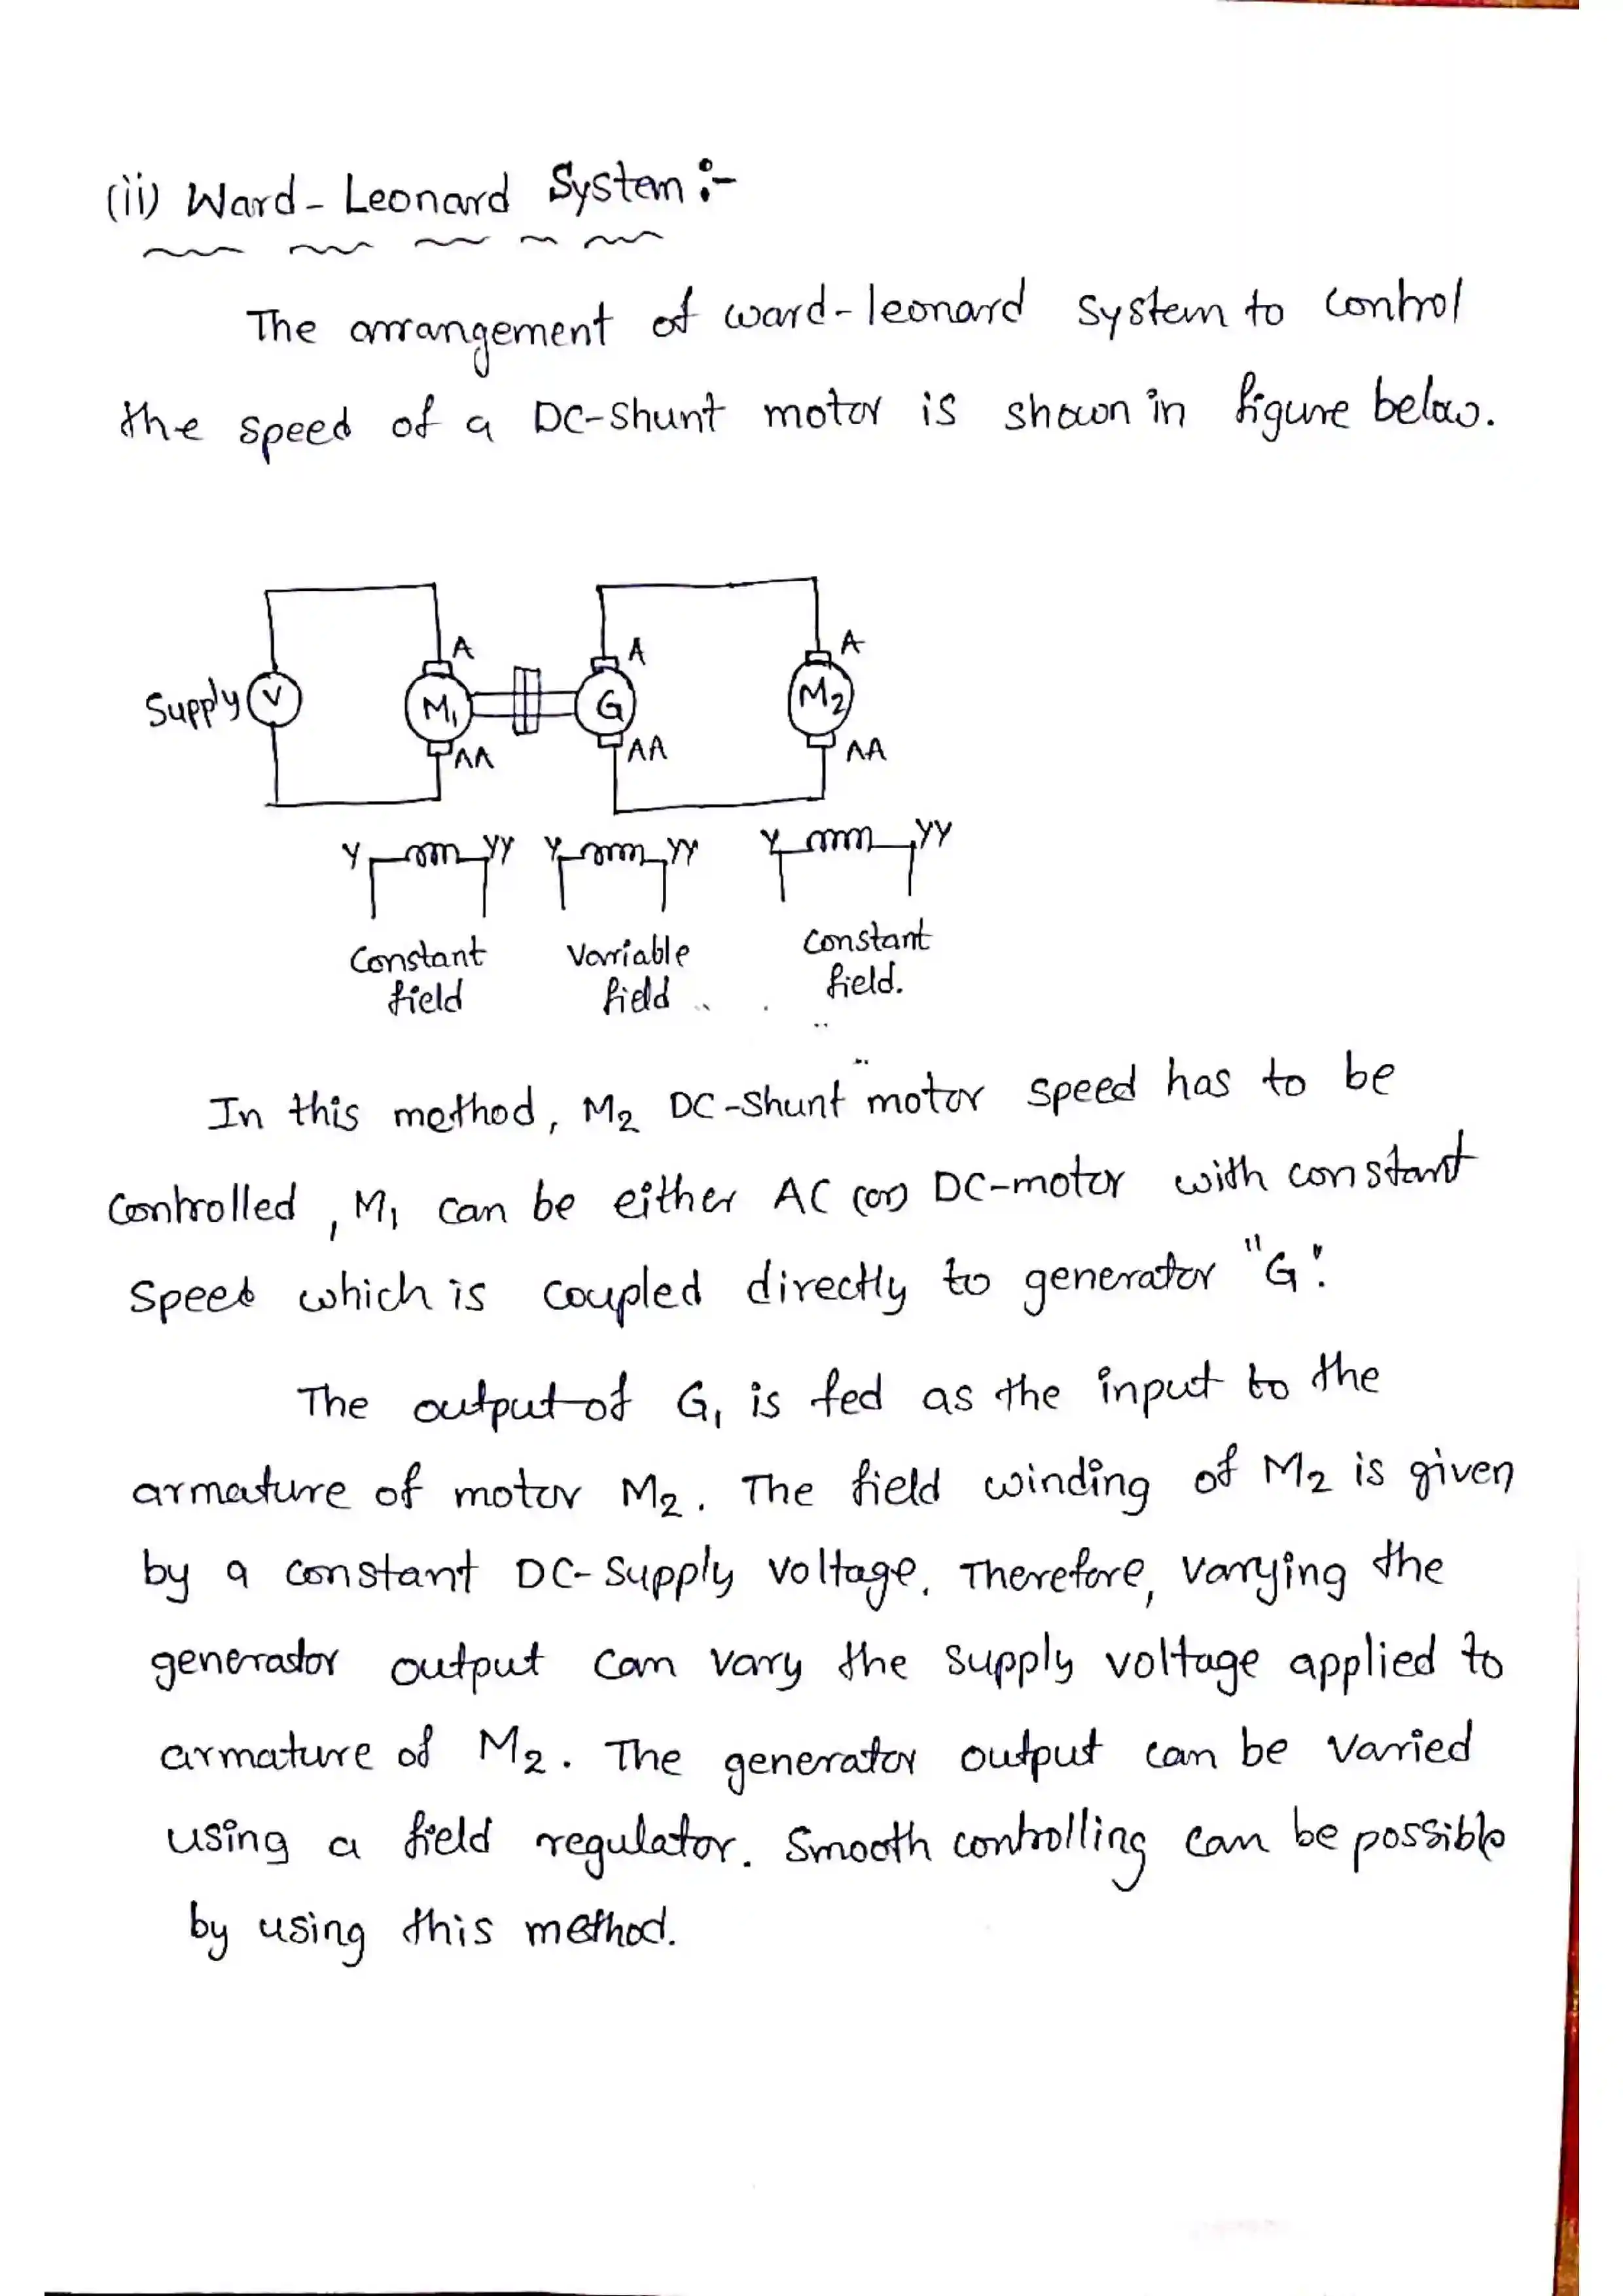 (ii) Ward - Leonard System :-
The arrangement of ward-leonard system to control
the speed of a DC-shunt motor is shown in figure below.
Supply V
A A A
M1 G M2
AA AA AA
Y YY Y YY Y YY
Constant Variable Constant
field field field.
In this method, M2 DC-shunt motor speed has to be
controlled, M1 can be either AC (or) DC-motor with constant
speed which is coupled directly to generator "G".
The output of G, is fed as the input to the
armature of motor M2. The field winding of M2 is given
by a constant DC-supply voltage. Therefore, varying the
generator output can vary the supply voltage applied to
armature of M2. The generator output can be varied
using a field regulator. Smooth controlling can be possible
by using this method.